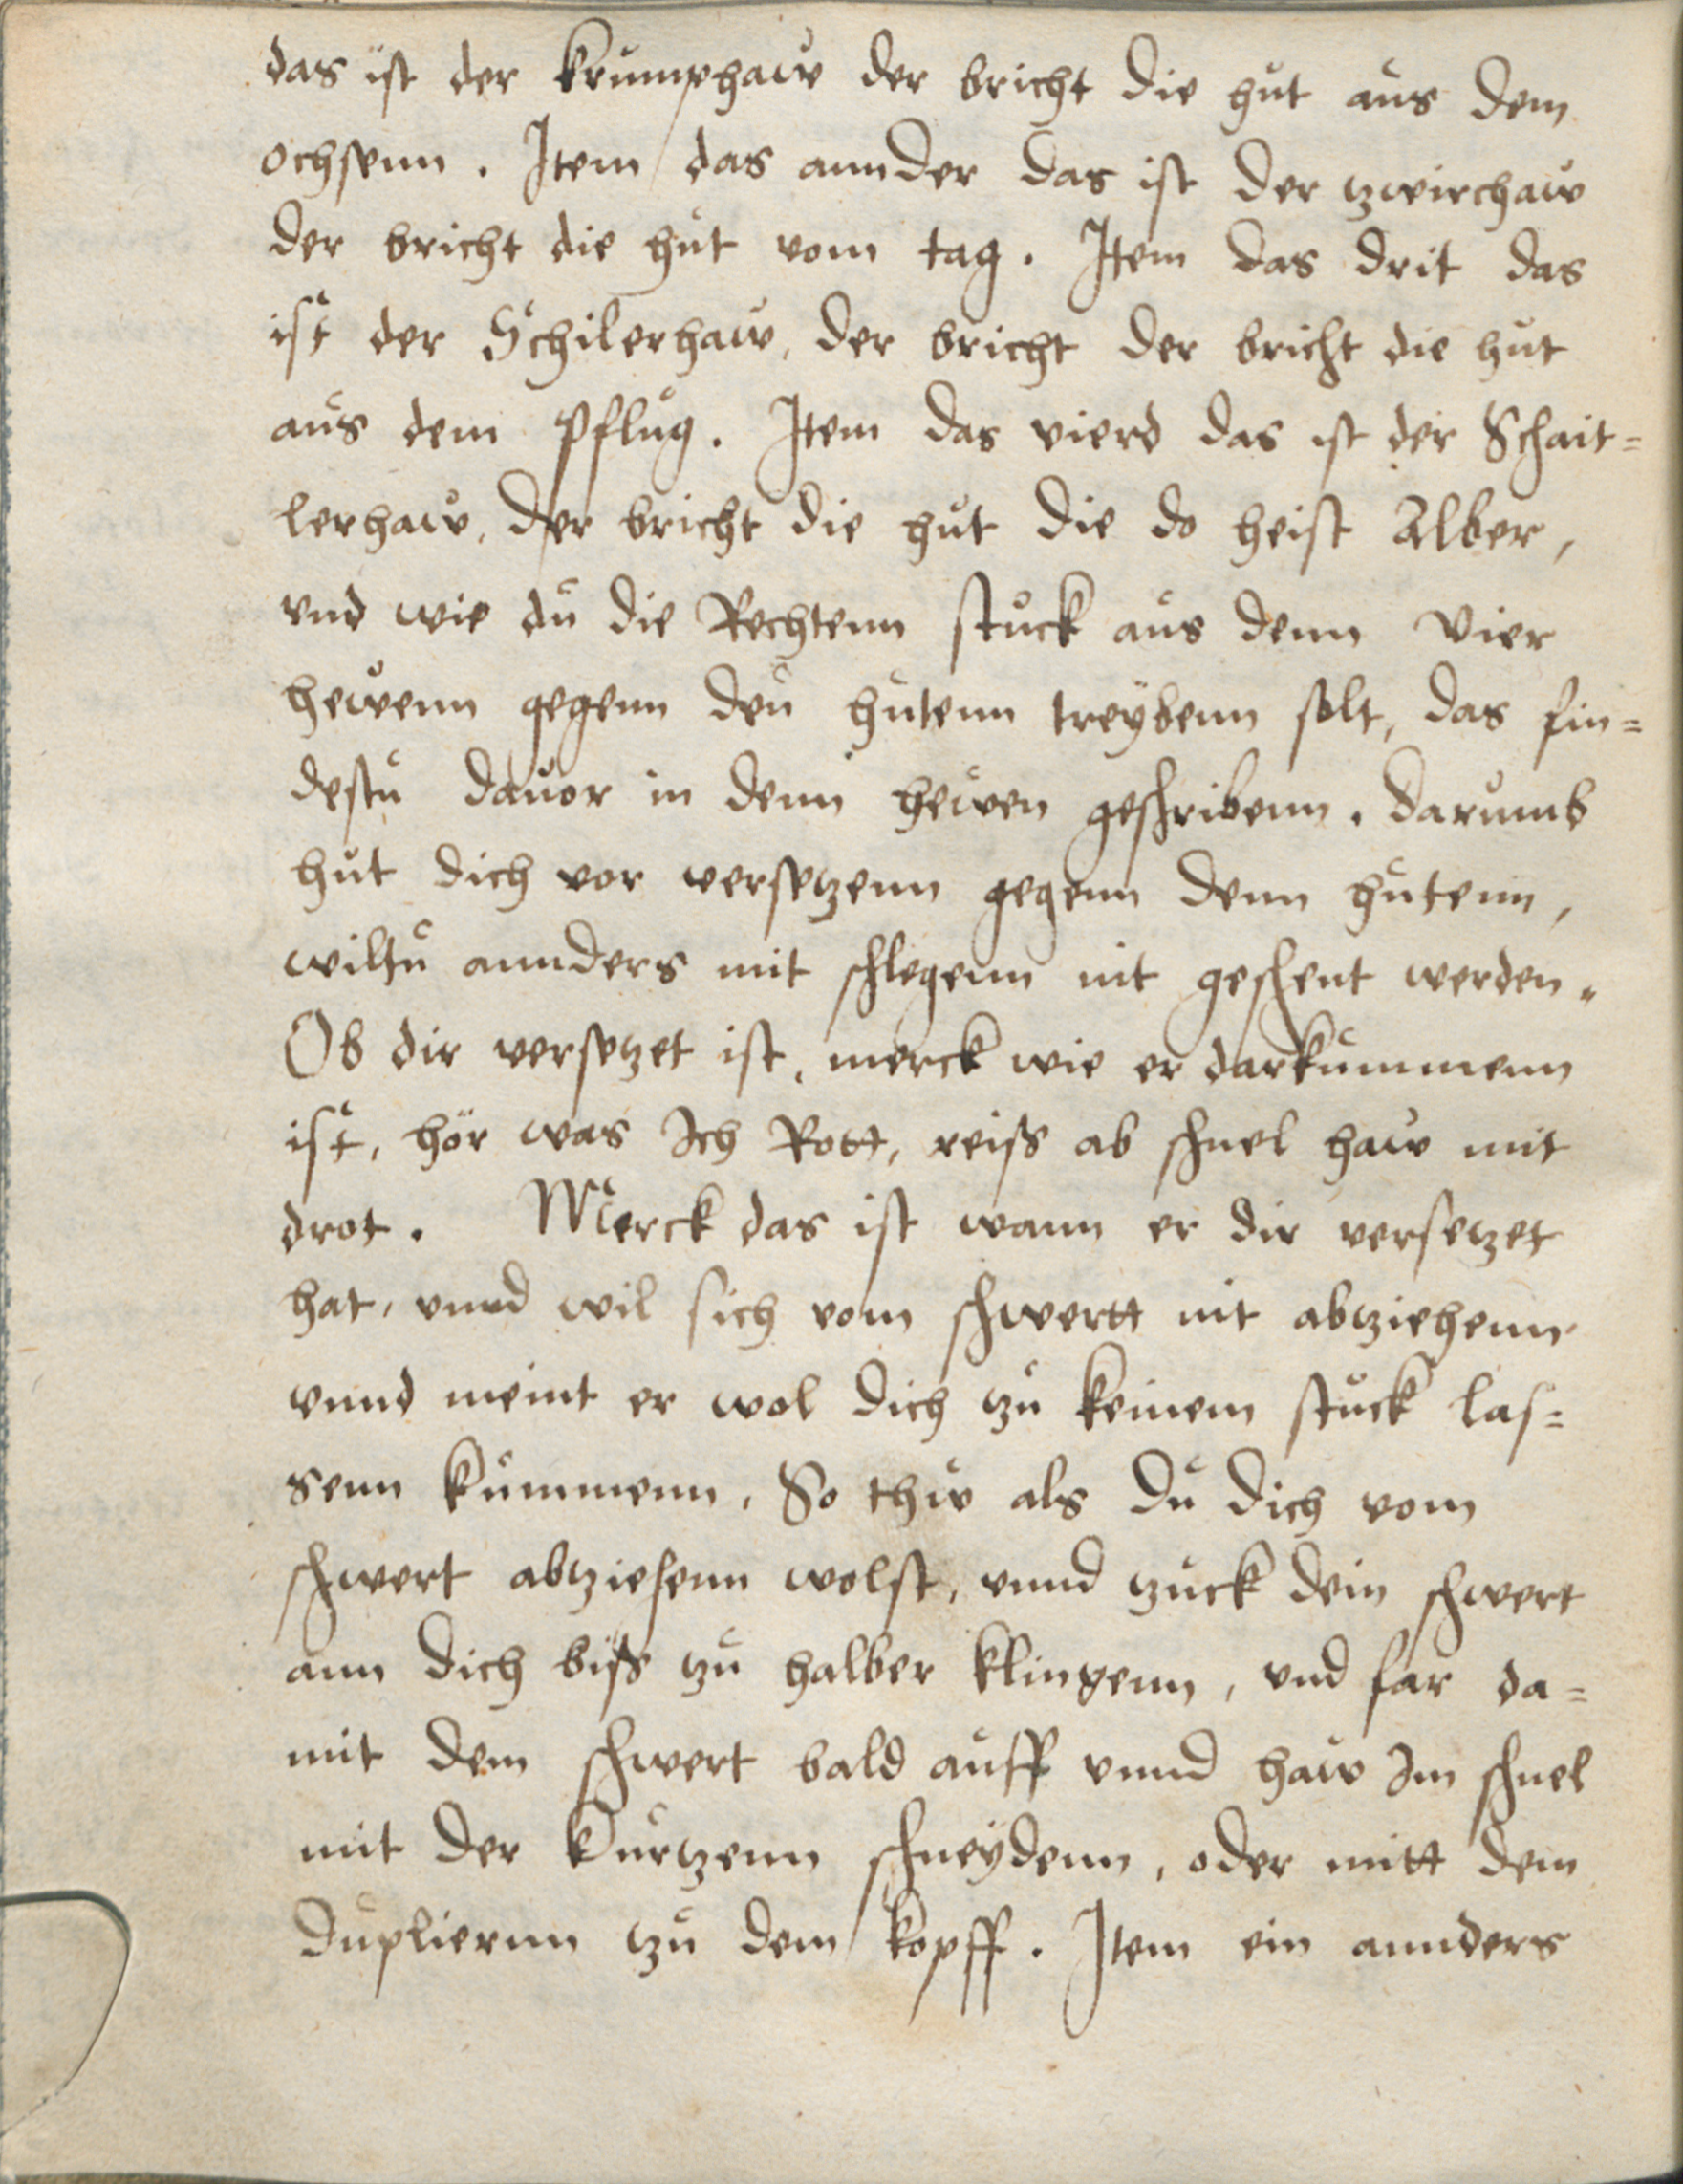 das ist der krumphaw der bricht die hut aus dem
ochsenn. Item das annder das ist der zwirchaw
der bricht die hut vom tag. Item das drit das
ist der Schilerhaw, der bricht der bricht die hut
aus dem Pflug. Item das vierd das ist der Schait=
lerhaw, der bricht die hut die do heist Alber,
vnd wie du die Rechtenn stuck aus denn vier
hewenn gegenn den hutenn treybenn solt, das fin=
destu dauor in denn hewen geschribenn. darumb
hut dich vor versetzenn gegenn denn hutenn,
wiltu annders mit schlegenn nit geschent werden.
Ob dir versetzet ist, merck wie er darkummenn
ist, hör was Ich Rott, reiss ab schnel haw mit
drot. Merck das ist wann er dir versetzet
hat, vnnd wil sich vom schwertt nit abziehenn
vnnd meint er wol dich zu keinem stuck las=
senn kummenn. So thw als du dich vom
schwert abziehenn wolst, vnnd zuck dein schwert
ann dich biss zu halber klingenn, vnd far da=
mit dem schwert bald auff vnnd haw Im schnel
mit der kurtzenn schneydenn, oder mitt dem
dupliernn zu dem kopff. Item ein annders